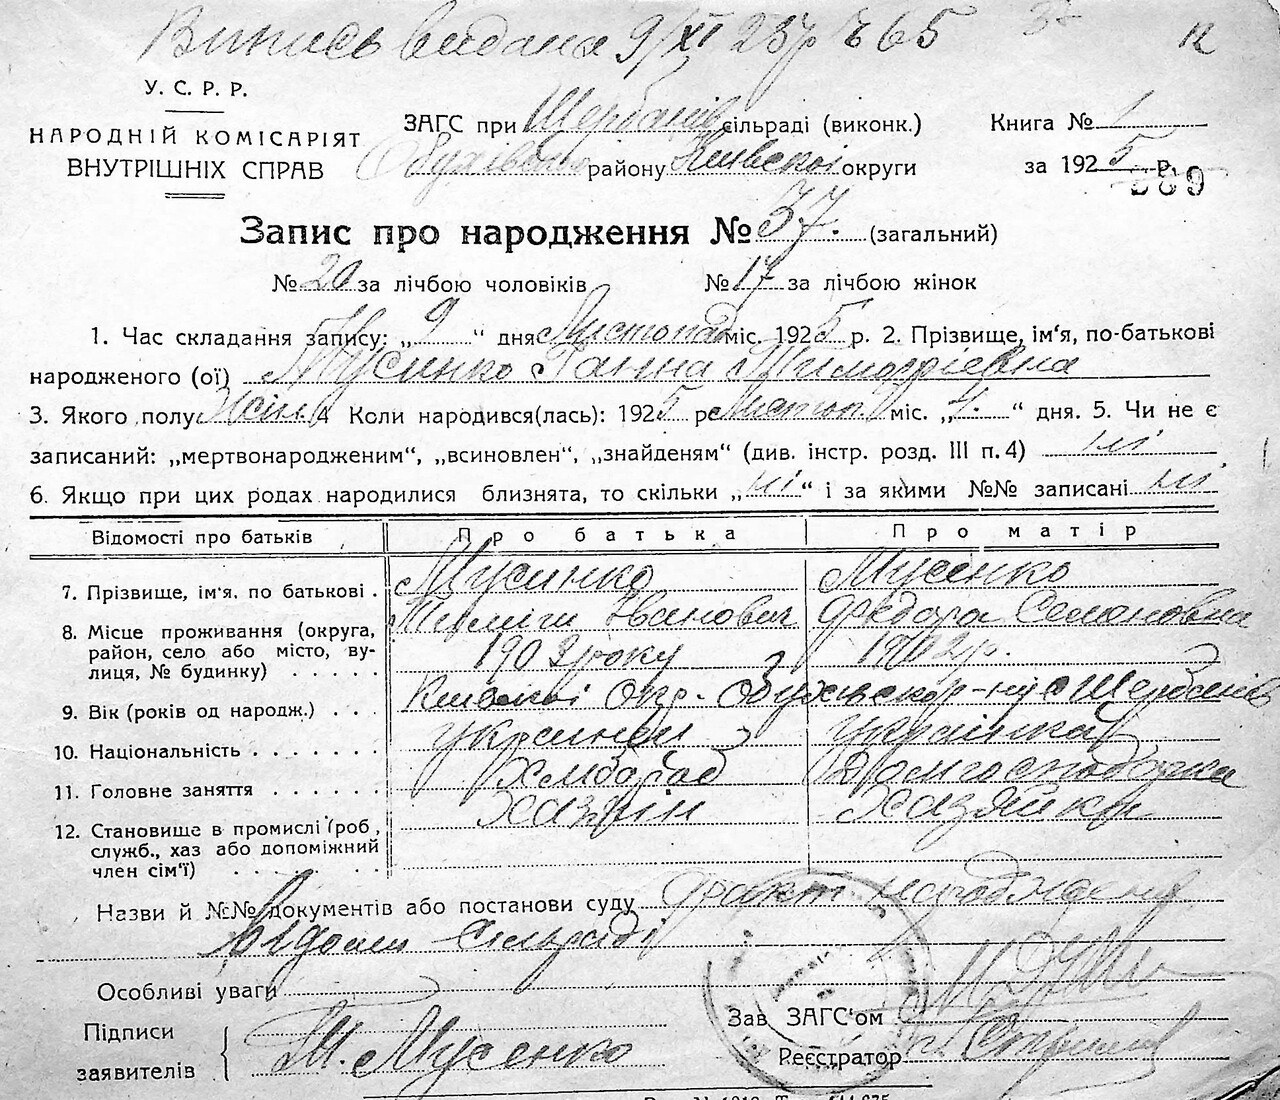 Випись видана 9/XI 25р № 65
12
У. С. Р. Р.
НАРОДНІЙ КОМІСАРІЯТ
ВНУТРІШНІХ СПРАВ
ЗАГС при Щербанів сільраді (виконк.)
району Київської округи
Книга № 1
за 1925 р.
389
Запис про народження № 37. (загальний)
№ 20 за лічбою чоловіків № 17 за лічбою жінок
1. Час складання запису: „ 9 “ дня Листопад міс. 1925 р. 2. Прізвище, ім'я, по-батькові
народженого (ої) Мусинко Ганна Тимофіевна
3. Якого полу Жін. 4 Коли народився(лась): 1925 р Листоп. міс. „ 4. “ дня. 5. Чи не є
записаний: „мертвонародженим“, „всиновлен“, „знайденям“ (див. інстр. розд. III п. 4) ні
6. Якщо при цих родах народилися близнята, то скільки „ ні “ і за якими №№ записані ні
Відомості про батьків Про батька Про матір
7. Прізвище, ім'я, по батькові . Мусинко Мусенко
Іванович Федора Семоновна
8. Місце проживання (округа,
район, село або місто, ву-
лиця, № будинку) . . . . . року 1902р.
9. Вік (років од народж.) . . . окр. Обухівськ р-ну с Щербанів
10. Національність . . . . . . . українец українка
11. Головне заняття . . . . . . Хлібороб Домгосподарка
12. Становище в промислі (роб,
служб., хаз або допоміжний
член сім'ї) . . . . . . Хазяїн Хазяйка
Назви й №№ документів або постанови суду факт народження
відомий Сільраді
Особливі уваги
Підписи
заявителів
Т. Мусенко
Зав ЗАГС'ом
Реєстратор